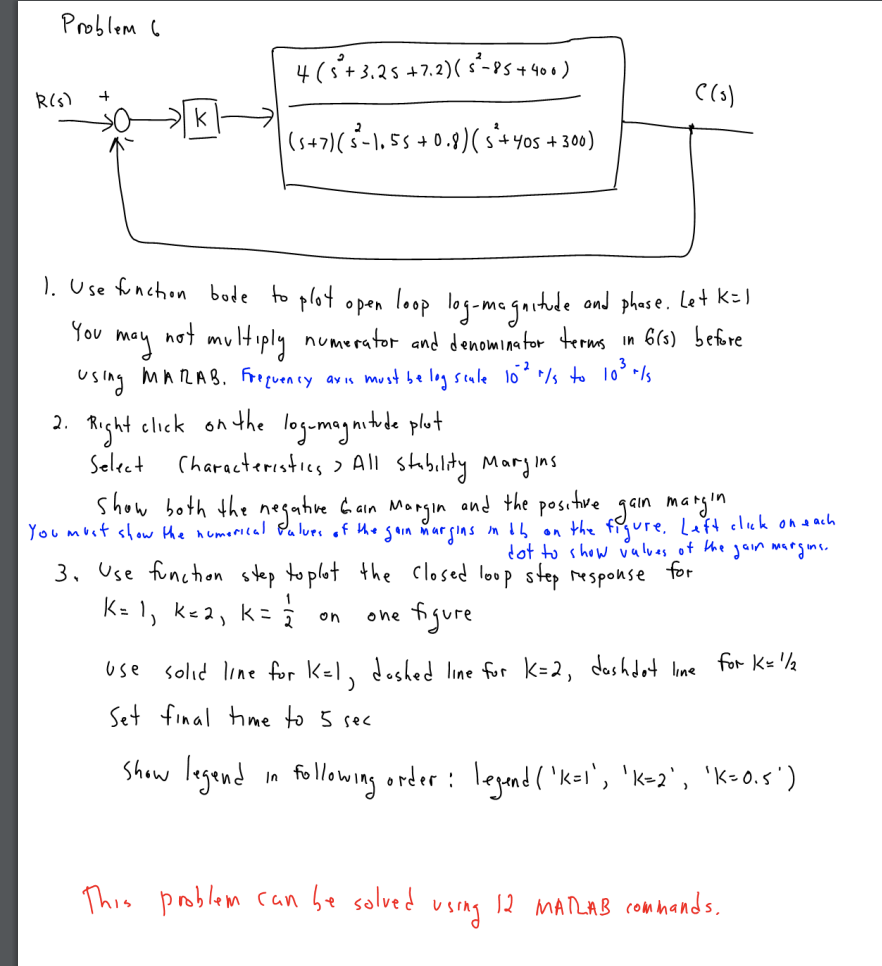 Problem 6
4 (s²+3.2s+7.2)(s²-8s+400)
R(s) +
C(s)
K
(s+7)(s²-1.5s+0.8)(s²+40s+300)
-
1. Use function bode to plot open loop log-magnitude and phase. Let K=1
You may not multiply numerator and denominator terms in G(s) before
using MATLAB. Frequency axis must be log scale 10⁻² r/s to 10³ r/s
2. Right click on the log-magnitude plot
Select Characteristics > All Stability Margins
Show both the negative Gain Margin and the positive gain margin
You must show the numerical values of the gain margins in db on the figure. Left click on each
dot to show values of the gain margins.
3. Use function step to plot the closed loop step response for
K=1, K=2, K=1/2 on one figure
use solid line for K=1, dashed line for K=2, dashdot line for K=1/2
Set final time to 5 sec
Show legend in following order: legend('K=1', 'K=2', 'K=0.5')
This problem can be solved using 12 MATLAB commands.